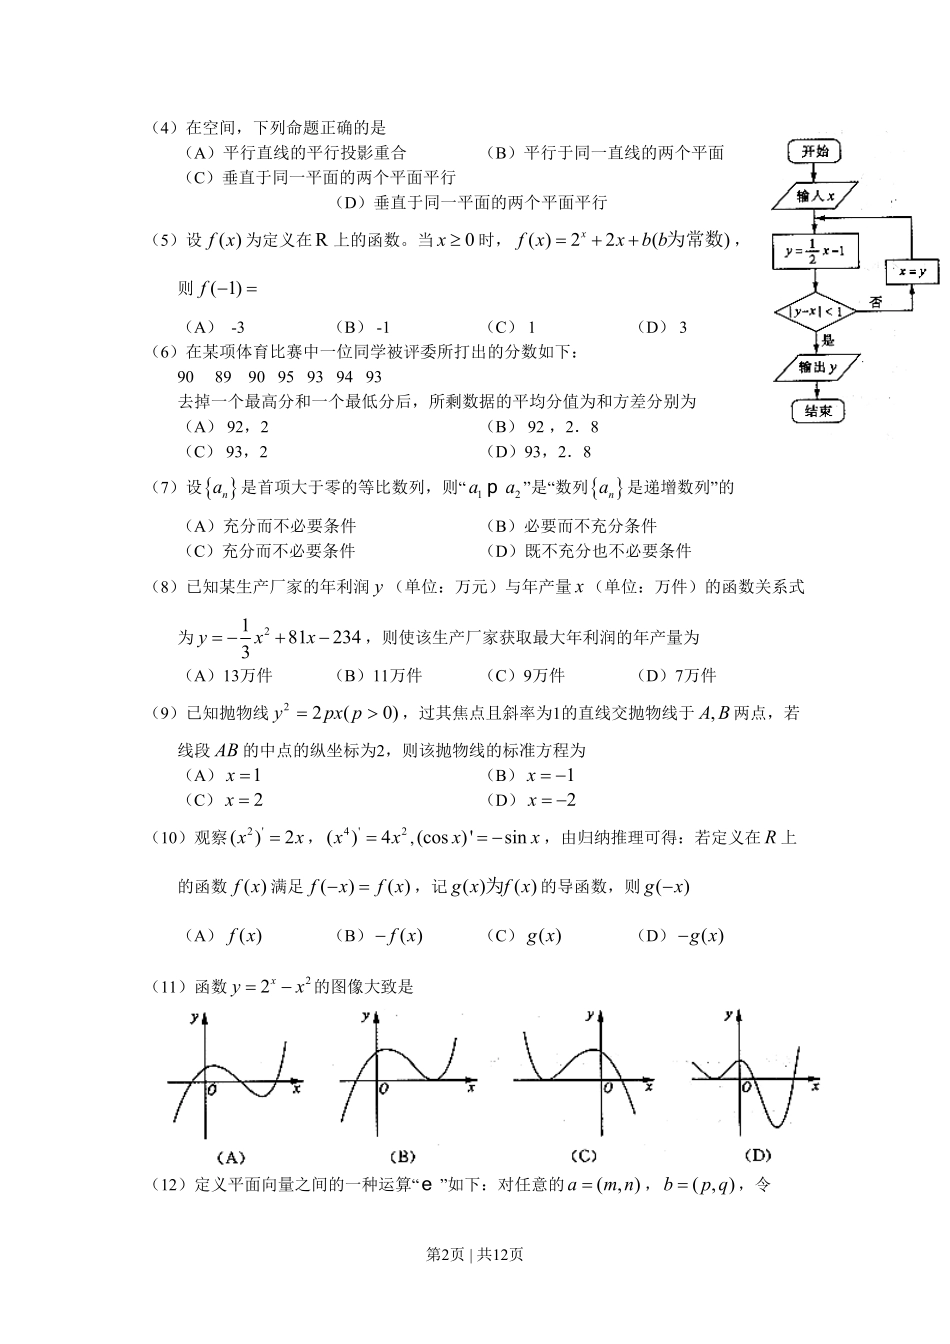 （4）在空间，下列命题正确的是
（A）平行直线的平行投影重合 （B）平行于同一直线的两个平面
（C）垂直于同一平面的两个平面平行
（D）垂直于同一平面的两个平面平行
（5）设 f(x) 为定义在 R 上的函数。当 x ≥ 0 时， f(x) = 2^x + 2x + b(b为常数)，
则 f(−1) =
（A） -3 （B） -1 （C） 1 （D） 3
（6）在某项体育比赛中一位同学被评委所打出的分数如下：
90 89 90 95 93 94 93
去掉一个最高分和一个最低分后，所剩数据的平均分值为和方差分别为
（A） 92，2 （B） 92 ，2．8
（C） 93，2 （D）93，2．8
（7）设{a_n}是首项大于零的等比数列，则“ a₁ p a₂ ”是“数列{a_n}是递增数列”的
（A）充分而不必要条件 （B）必要而不充分条件
（C）充分而不必要条件 （D）既不充分也不必要条件
（8）已知某生产厂家的年利润 y （单位：万元）与年产量 x （单位：万件）的函数关系式
为 y = −1/3 x² + 81x − 234 ，则使该生产厂家获取最大年利润的年产量为
（A）13万件 （B）11万件 （C）9万件 （D）7万件
（9）已知抛物线 y² = 2px(p > 0) ，过其焦点且斜率为1的直线交抛物线于 A, B 两点，若
线段 AB 的中点的纵坐标为2，则该抛物线的标准方程为
（A） x = 1 （B） x = −1
（C） x = 2 （D） x = −2
（10）观察 (x²)' = 2x ， (x⁴)' = 4x² , (cos x)' = −sin x ，由归纳推理可得：若定义在 R 上
的函数 f(x) 满足 f(−x) = f(x) ，记 g(x)为f(x) 的导函数，则 g(−x)
（A） f(x) （B） −f(x) （C） g(x) （D） −g(x)
（11）函数 y = 2^x − x² 的图像大致是
y y y y
O x O x O x O x
（A） （B） （C） （D）
（12）定义平面向量之间的一种运算“ e ”如下：对任意的 a = (m, n) ， b = (p, q) ，令
第2页 | 共12页
开始
输入 x
y=1/2 x−1
x=y
|y−x|<1
否
是
输出 y
结束